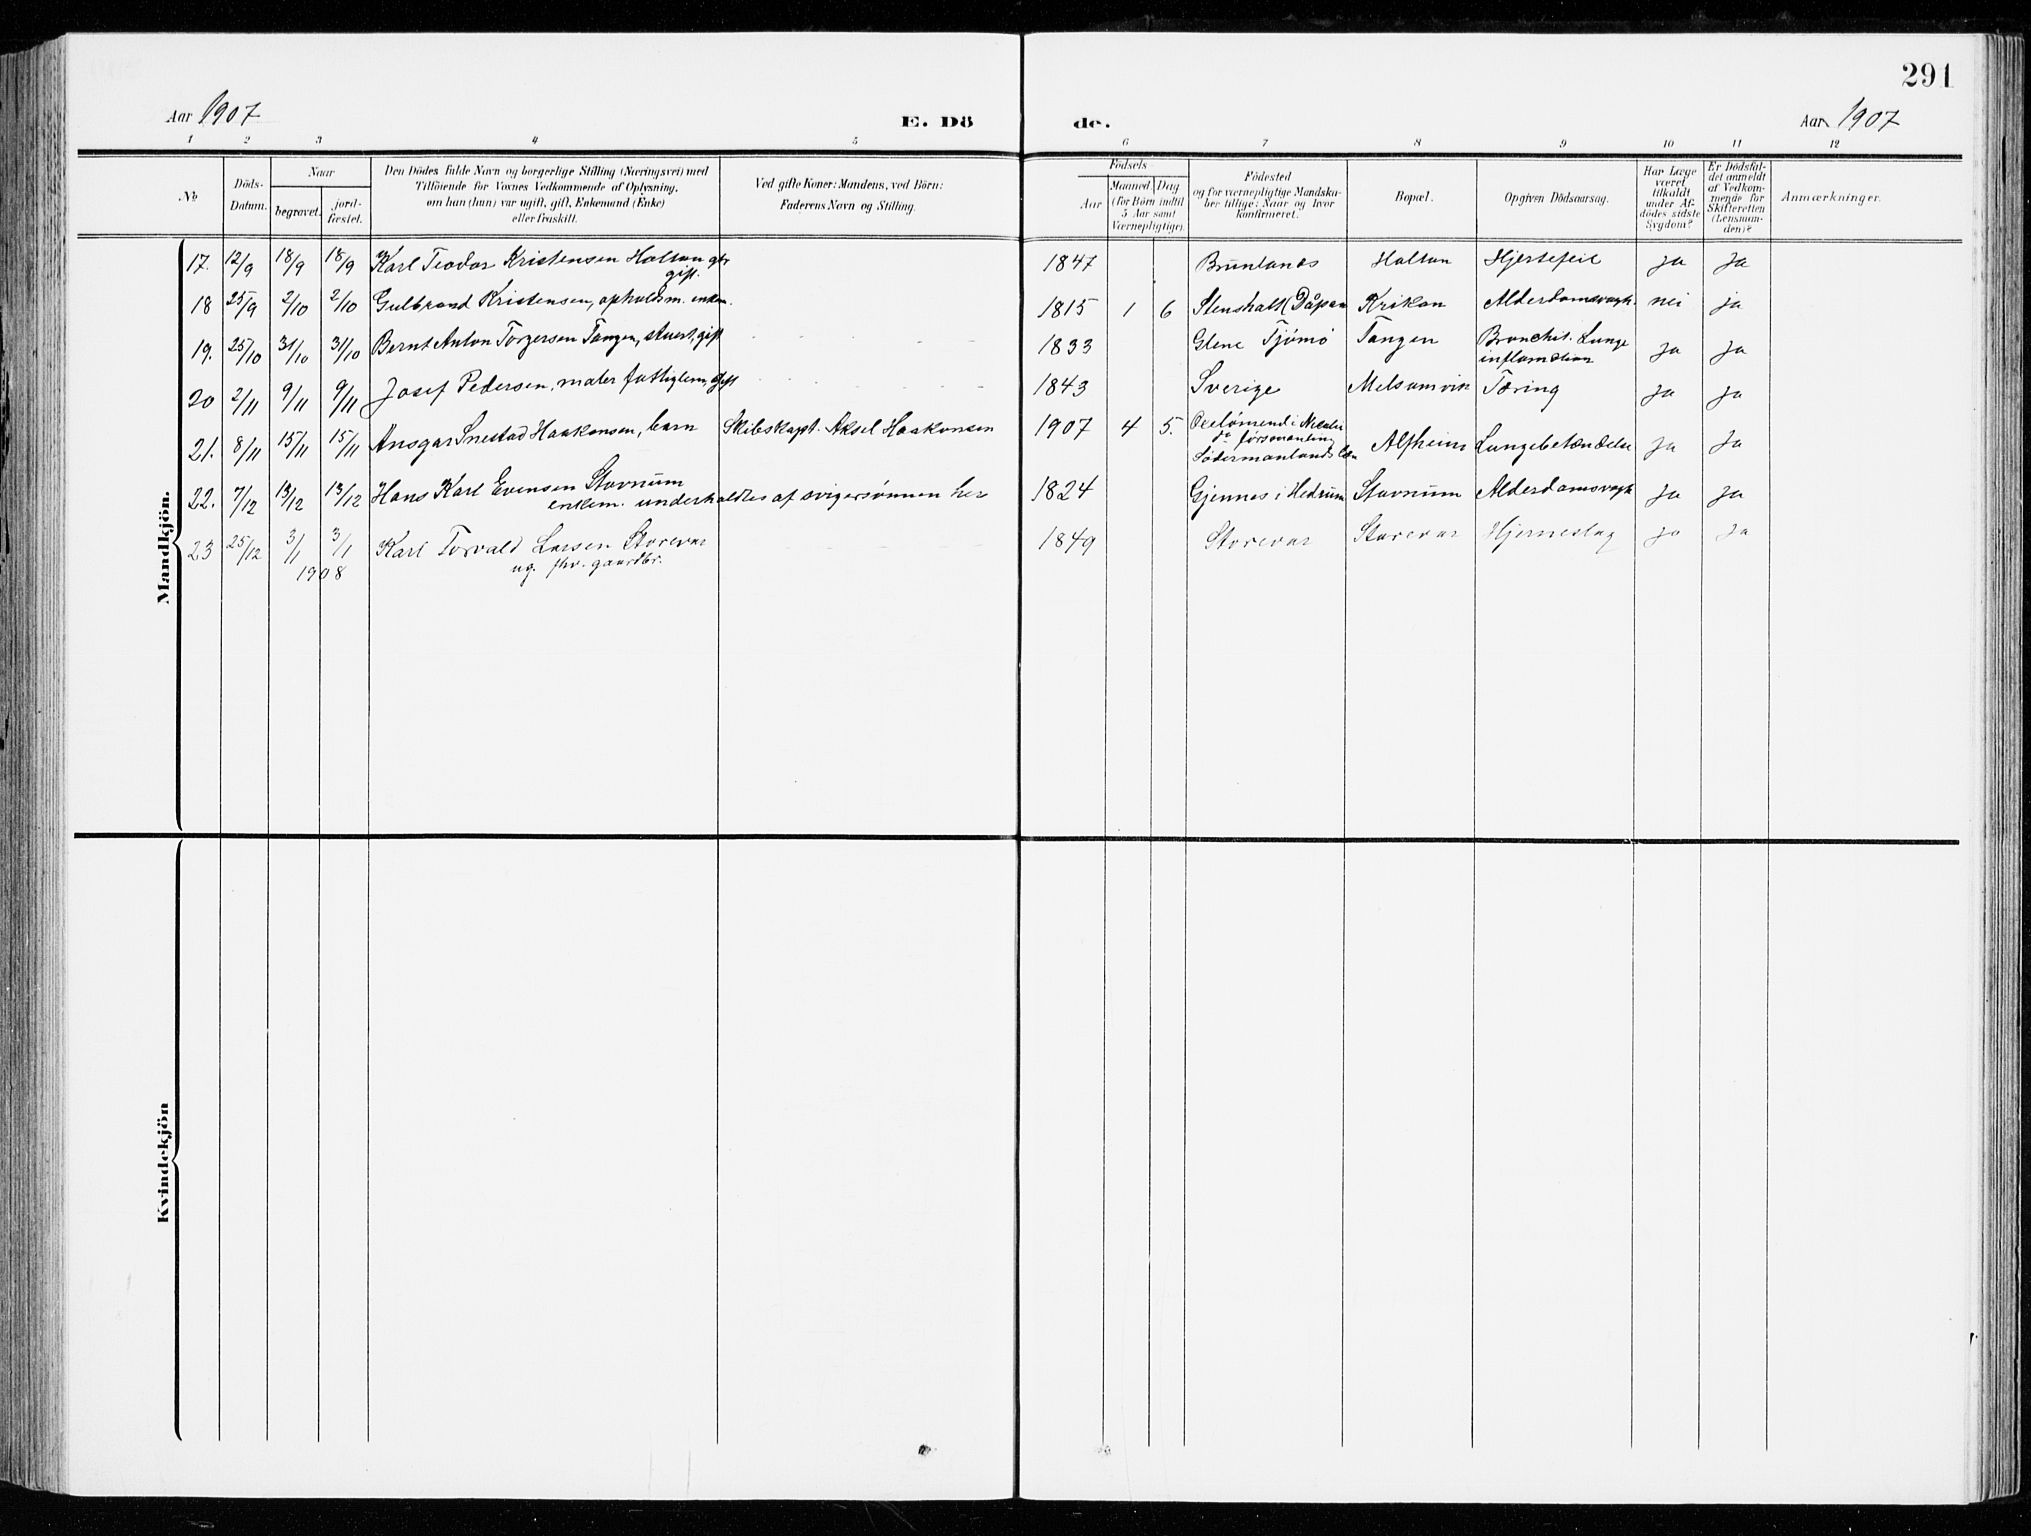 291
Aar 1907
E. Dö
de.
Aar 1907
1 2 3 4 5 6 7 8 9 10 11 12
No
Döds-
Datum.
Naar
begravet.
jord-
fæstet.
Den Dödes fulde Navn og borgerlige Stilling (Næringsvei) med
Tilföiende for Voxnes Vedkommende af Oplysning,
om han (hun) var ugift, gift, Enkemand (Enke)
eller fraskilt.
Ved gifte Koner: Mandens, ved Börn:
Faderens Navn og Stilling.
Födsels
Aar
Maaned. Dag
(for Börn indtil
5 Aar samt
Værnepligtige).
Födested
og for værnepligtige Mandska-
ber tillige: Naar og hvor
konfirmeret.
Bopæl.
Opgiven Dödsaarsag.
Har Læge
været
tilkaldt
under Af-
dödes sidste
Sygdom?
Er Dödsfal-
det anmeldt
af Vedkom-
mende for
Skifteretten
(Lensman-
den)?
Anmærkninger.
Mandkjön.
17. 12/9 18/9 18/9 Karl Teodor Kristensen Holtan gbr
gift.
1847 Brunlanes Holtan Hjertefeil ja ja
18 25/9 2/10 2/10 Gulbrand Kristensen, opholdsm. enkem.
1815 1 6 Stenshalt (Dåpen Krikan Alderdomssvagh. nei ja
19. 25/10 31/10 31/10 Bernt Anton Torgersen Tangen, stuert, gift
1833 Glene Tjømø Tangen Bronchit. Lunge
inflamation ja ja
20 2/11 9/11 9/11 Josef Pedersen, maler fattiglem, gift
1843 Sverige Melsomvik Tæring ja ja
21. 8/11 15/11 15/11 Ansgar Snestad Haakonsen, barn Skibskapt. Aksel Haakonsen
1907 4 5. i
da försomanling
Södermanlands Län Alfheim Lungebetændelse ja ja
22. 7/12 13/12 13/12 Hans Karl Evensen Stavnum
enkem. underholdtes af svigersønnen her
1824 Gjennes i Hedrum Stavnum Alderdomssvagh ja ja
23 25/12 3/1 3/1 Karl Torvald Larsen Storevar
1908 ug. fhv. gaardbr.
1849 Storevar Storevar Hjerneslag ja ja
Kvindekjön